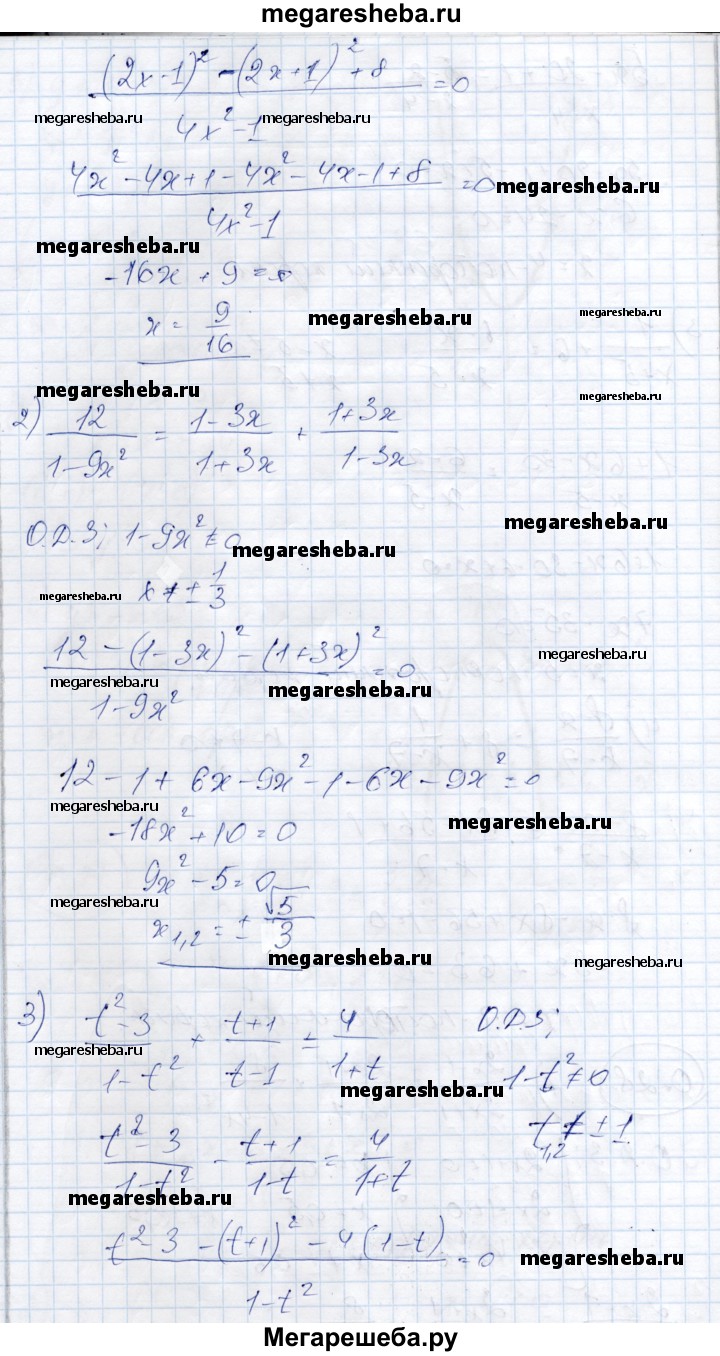 megaresheba.ru
(2x-1)² - (2x+1)² + 8 / 4x²-1 = 0
megaresheba.ru megaresheba.ru megaresheba.ru
4x² - 4x + 1 - 4x² - 4x - 1 + 8 / 4x²-1 = 0 megaresheba.ru
megaresheba.ru
-16x + 9 = 0 megaresheba.ru
x = 9/16 megaresheba.ru
megaresheba.ru megaresheba.ru
2) 12 / 1-9x² = 1-3x / 1+3x + 1+3x / 1-3x
megaresheba.ru
О.Д.З; 1-9x² ≠ 0 megaresheba.ru
megaresheba.ru x ≠ ± 1/3
12 - (1-3x)² - (1+3x)² / 1-9x² = 0 megaresheba.ru
megaresheba.ru megaresheba.ru
12 - 1 + 6x - 9x² - 1 - 6x - 9x² = 0
megaresheba.ru
-18x² + 10 = 0 megaresheba.ru
9x² - 5 = 0
megaresheba.ru
x1,2 = ± √5/3
megaresheba.ru megaresheba.ru
3) t²-3 / 1-t² + t+1 / t-1 = 4 / 1+t О.Д.З;
megaresheba.ru
megaresheba.ru 1-t² ≠ 0
t1,2 ≠ ±1
t²-3 / 1-t² - t+1 / 1-t = 4 / 1+t
megaresheba.ru megaresheba.ru
t²-3 - (t+1)² - 4(1-t) / 1-t² = 0 megaresheba.ru
Мегарешеба.ру